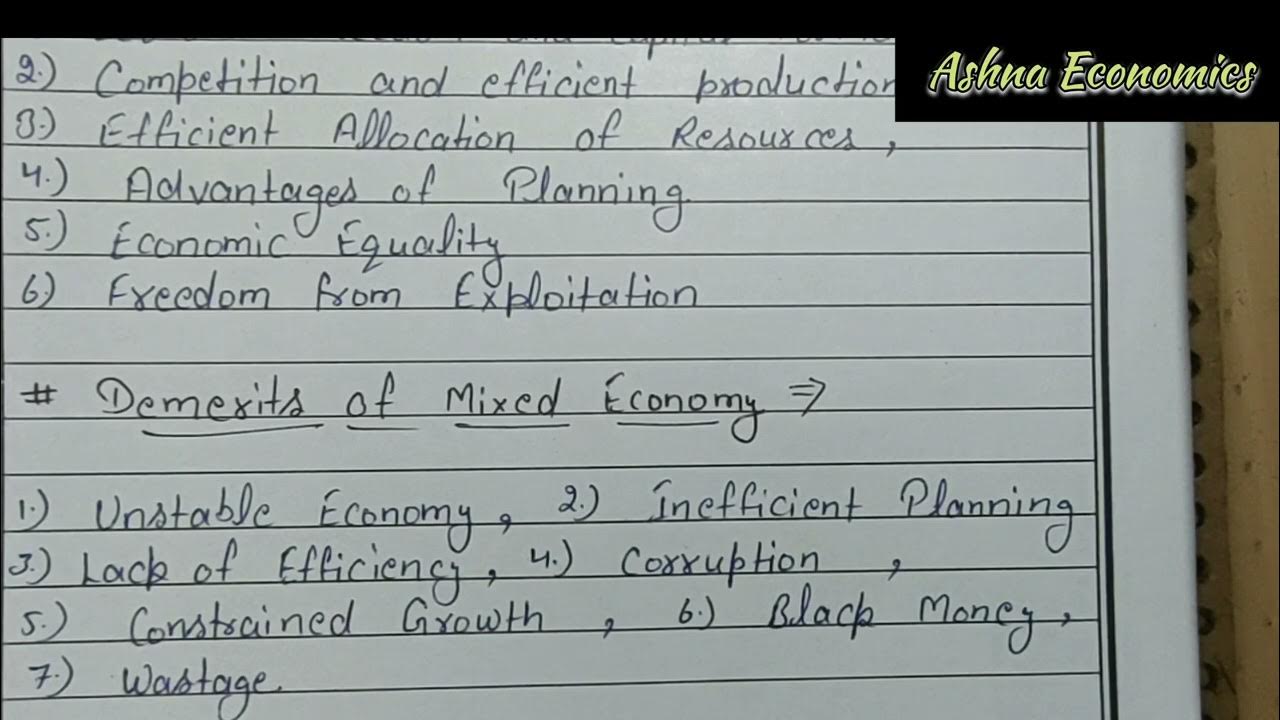 and capital
2.) Competition and efficient production
Ashna Economics
3.) Efficient Allocation of Resources,
4.) Advantages of Planning
5.) Economic Equality
6) Freedom from Exploitation
# Demerits of Mixed Economy ⇒
1.) Unstable Economy, 2.) Inefficient Planning
3.) Lack of Efficiency, 4.) Corruption,
5.) Constrained Growth, 6.) Black Money,
7.) Wastage.